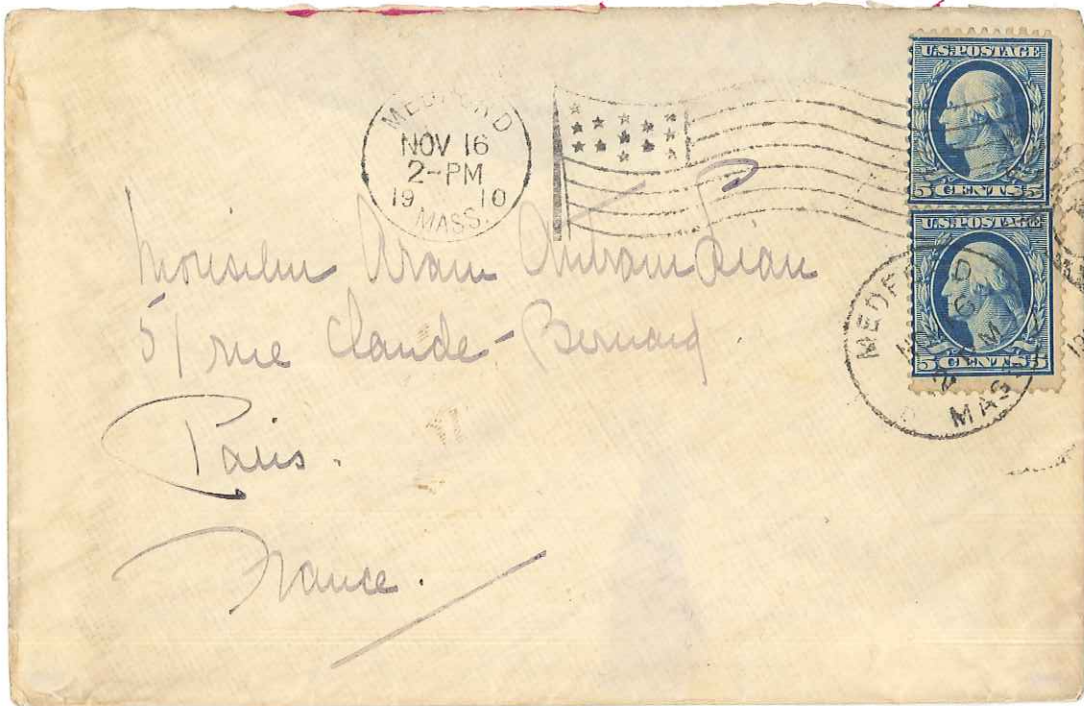 MEDFORD
NOV 16
2-PM
19 10
MASS.
U.S. POSTAGE
5 CENTS 5
U.S. POSTAGE
5 CENTS 5
MEDFORD
MASS
Monsieur Aram
51 rue Claude-Bernard.
Paris.
France.